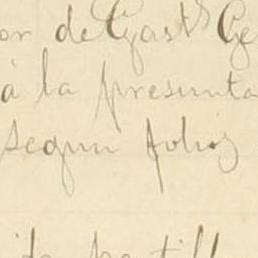 or de Gast.s Ge
á la presunta
segun folio